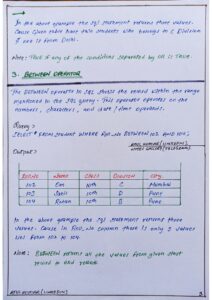 In the above example the sql statement returns three values.
Cause Given table have two students who belongs to C Division
if one is from Delhi.
Note: Thus if any of the conditions separated by OR is True
3. BETWEEN OPERATOR
The BETWEEN operator in SQL stores the record within the range
mentioned in the SQL query. This operator operates on the
numbers, characters, and date / time operators.
Query:
SELECT * FROM student WHERE Roll_No BETWEEN 102 AND 104;
Output:
RollNo Name Class Division City
102 Om 10th C Mumbai
103 10th D Pune
104 10th B Pune
In the above example the sql statement returns three
values. Cause in Roll_No common there is only 3 values
lies from 102 to 104.
Note: Between returns all the values from given start
record to end record.